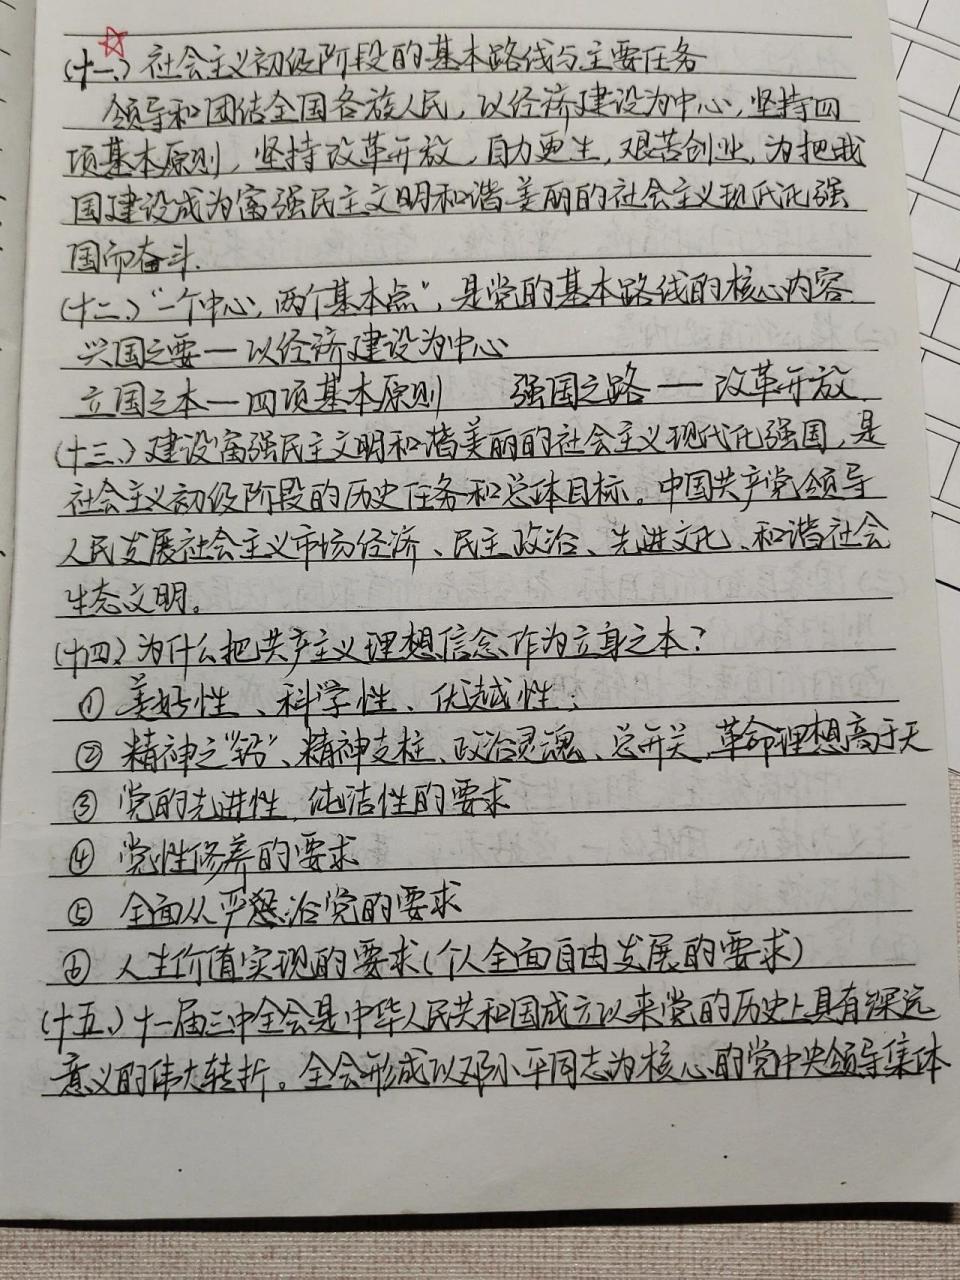 (十一、)社会主义初级阶段的基本路线与主要任务
领导和团结全国各族人民，以经济建设为中心，坚持四
项基本原则，坚持改革开放，自力更生，艰苦创业，为把我
国建设成为富强民主文明和谐美丽的社会主义现代化强
国而奋斗.
(十二、)"一个中心，两个基本点"，是党的基本路线的核心内容
兴国之要—以经济建设为中心
立国之本—四项基本原则 强国之路—改革开放.
(十三、)建设富强民主文明和谐美丽的社会主义现代化强国，是
社会主义初级阶段的历史任务和总体目标。中国共产党领导
人民发展社会主义市场经济、民主政治、先进文化、和谐社会
生态文明。
(十四、)为什么把共产主义理想信念作为立身之本？
① 美好性、科学性、优越性；
② 精神之"钙"、精神支柱、政治灵魂、总开关,革命理想高于天
③ 党的先进性,纯洁性的要求
④ 党性修养的要求
⑤ 全面从严治党的要求
⑥ 人生价值实现的要求(个人全面自由发展的要求)
(十五、)十一届三中全会是中华人民共和国成立以来党的历史上具有深远
意义的伟大转折。全会形成以邓小平同志为核心的党中央领导集体